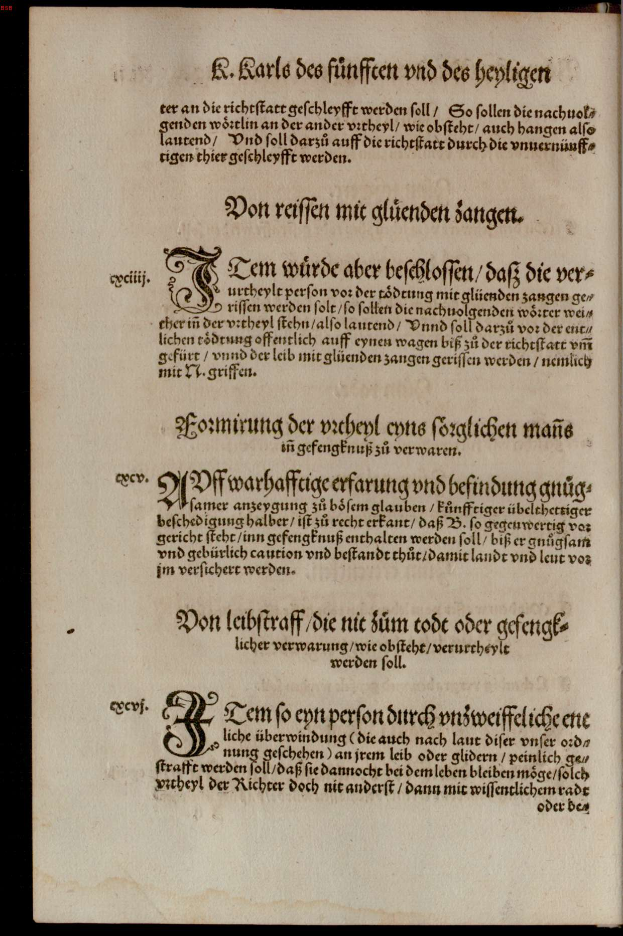 K. Karls des fünfften vnd des heyligen
ter an die richtstatt geschleyfft werden soll / So sollen die nachuol⸗
genden wörtlin an der ander vrtheyl / wie obsteht / auch hangen also
lautend / Vnd soll darzů auff die richtstatt durch die vnuernünff⸗
tigen thier geschleyfft werden.
Von reissen mit glüenden zangen.
cxciiij. ITem würde aber beschlossen / daß die ver⸗
urtheylt person vor der tödtung mit glüenden zangen ge⸗
rissen werden solt / so sollen die nachuolgenden wörter wei⸗
ther in der vrtheyl stehn / also lautend / Vnnd soll darzů vor der ent⸗
lichen tödtung offentlich auff eynen wagen biß zů der richtstatt vm̄
gefürt / vnnd der leib mit glüenden zangen gerissen werden / nemlich
mit N. griffen.
Formirung der vrtheyl eyns sorglichen mañs
iñ gefengknuß zů verwaren.
cxcv. AVff warhafftige erfarung vnd befindung gnůg⸗
samer anzeygung zů bösem glauben / künfftiger übelthettiger
beschedigung halber / ist zů recht erkant / daß B. so gegenwertig vor
gericht steht / inn gefengknuß enthalten werden soll / biß er gnůgsam
vnd gebürlich caution vnd bestandt thůt / damit landt vnd leut vor
jm versichert werden.
Von leibstraff / die nit zům todt oder gefengk⸗
licher verwarung / wie obsteht / verurtheylt
werden soll.
cxcvj. ITem so eyn person durch vnzweiffeliche ent
liche überwindung (die auch nach laut diser vnser ord⸗
nung geschehen) an jrem leib oder glidern / peinlich ge⸗
strafft werden soll / daß sie dannocht bei dem leben bleiben möge / solch
vrtheyl der Richter doch nit anderst / dann mit wissentlichem radt
oder be⸗